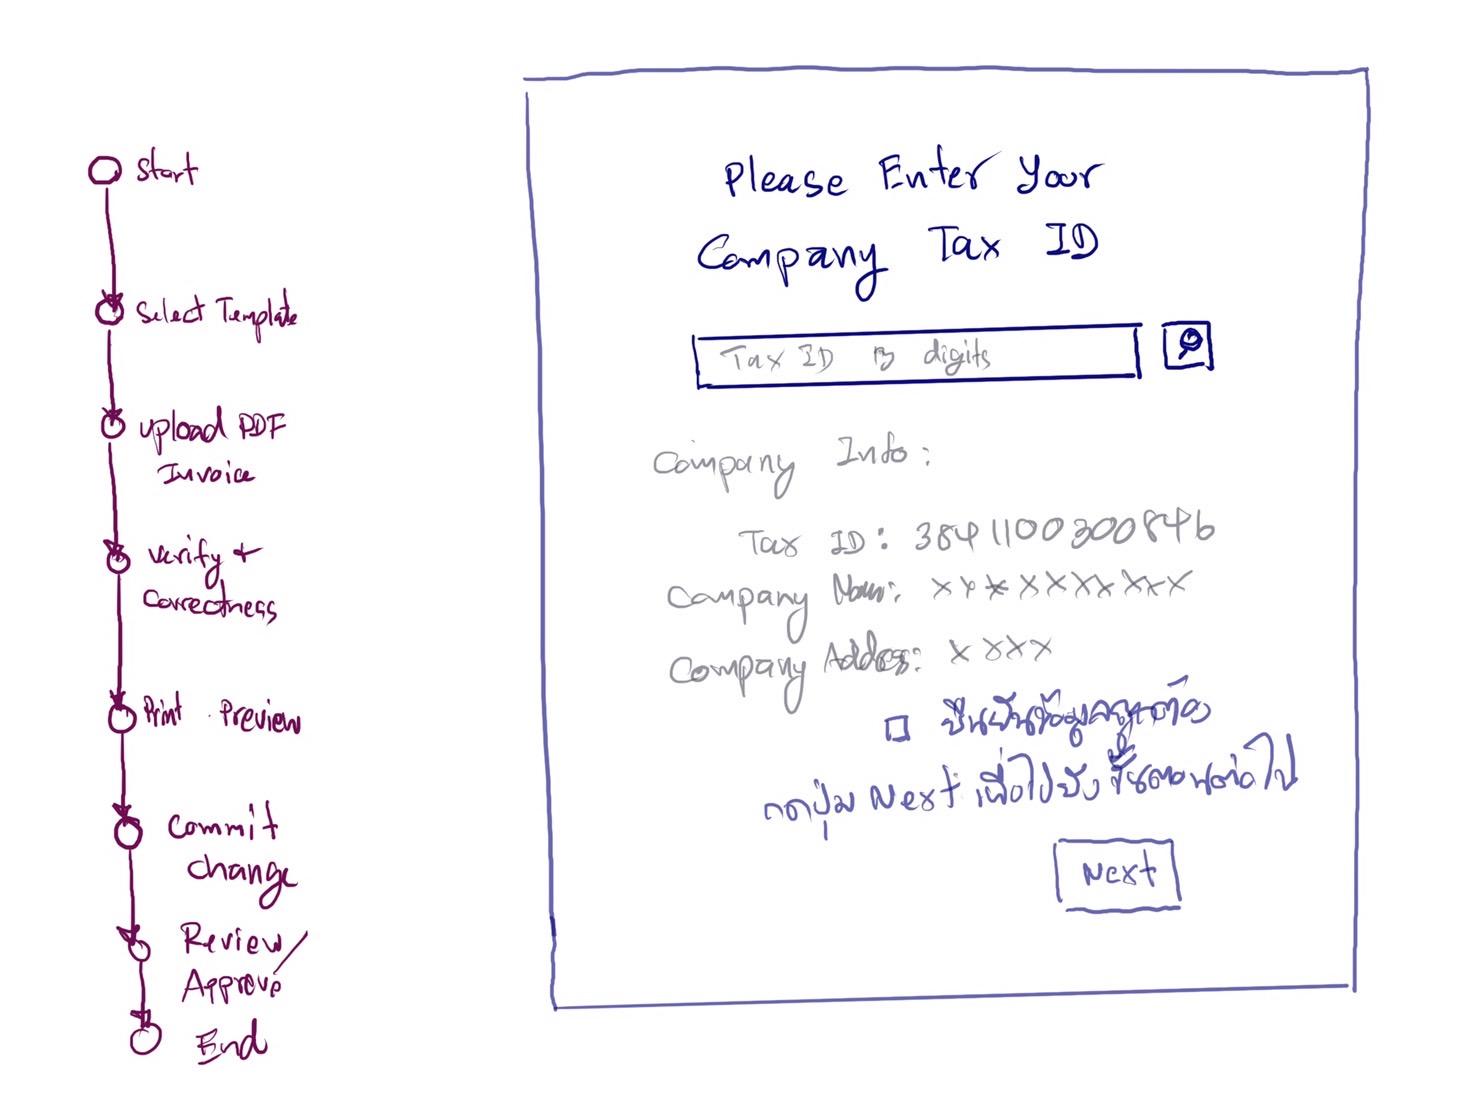 Start
Select Template
Upload PDF
Invoice
Verify +
Correctness
Print Preview
Commit
change
Review/
Approve
End
Please Enter Your
Company Tax ID
Tax ID 13 digits
Company Info:
Tax ID: 3841100300846
Company Name: xxxxxxxxxx
Company Address: xxxx
ยืนยันข้อมูลถูกต้อง
กดปุ่ม Next เพื่อไปยังขั้นตอนต่อไป
Next